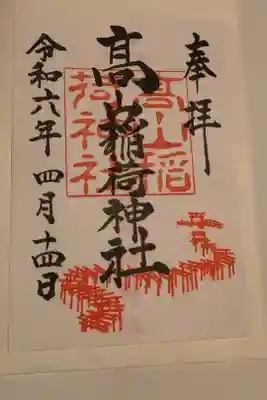 奉拝
髙山稲荷神社
高山稲
荷神社
令和六年 四月十四日